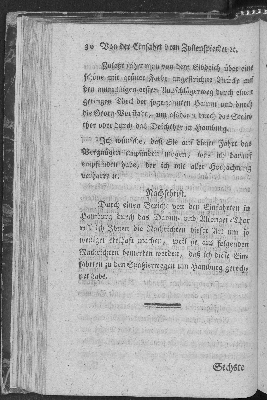 30 Von der Einfahrt vom Zollenspieker ec.
Zuletzt fährt man von dem Elbdeich über eine
schöne mit grüner Farbe angestrichene Brücke auf
den
geringen Theil des sogenannten Hamm und durch
die Georg Vorstadt, um alsdann durch das Stein-
thor oder durch das Deichthor in Hamburg.
Ich wünsche, daß Sie auf dieser Fahrt das
Vergnügen empfinden mögen, was ich darauf
empfunden habe, der ich mit aller Hochachtung
verharre ec.
Nachschrift.
Durch einen Bericht von den Einfahrten in
Hamburg durch das Damm- und Altonaer-Thor
will ich Ihnen die Nachrichten dieser Art um so
weniger lassen, weil sie aus folgenden
Nachrichten bemerken werden, daß ich diese Ein-
fahrten zu den von Hamburg gerech-
net habe.
Sechste